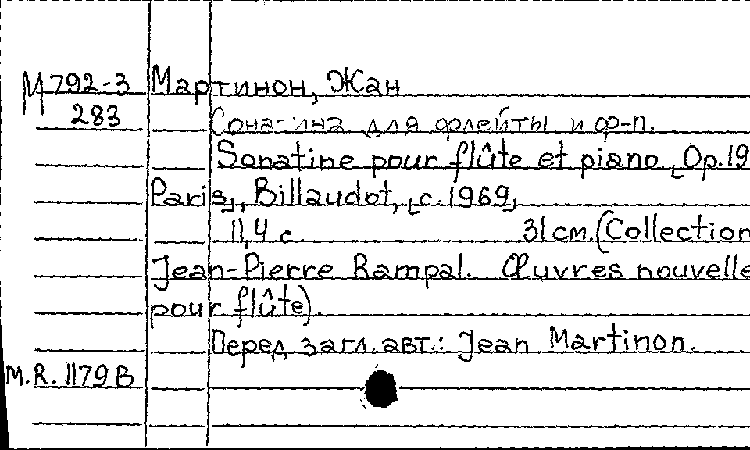 М 792-3 Мартинон, Жан
283 Сонатина для флейты и ф-п.
Sonatine pour flûte et piano, Op.19
Paris, Billaudot, [c. 1969]
11,4 с. 31 см. (Collection
Jean-Pierre Rampal. Œuvres nouvelle
pour flûte).
Перед загл. авт.: Jean Martinon.
M.R. 1179B